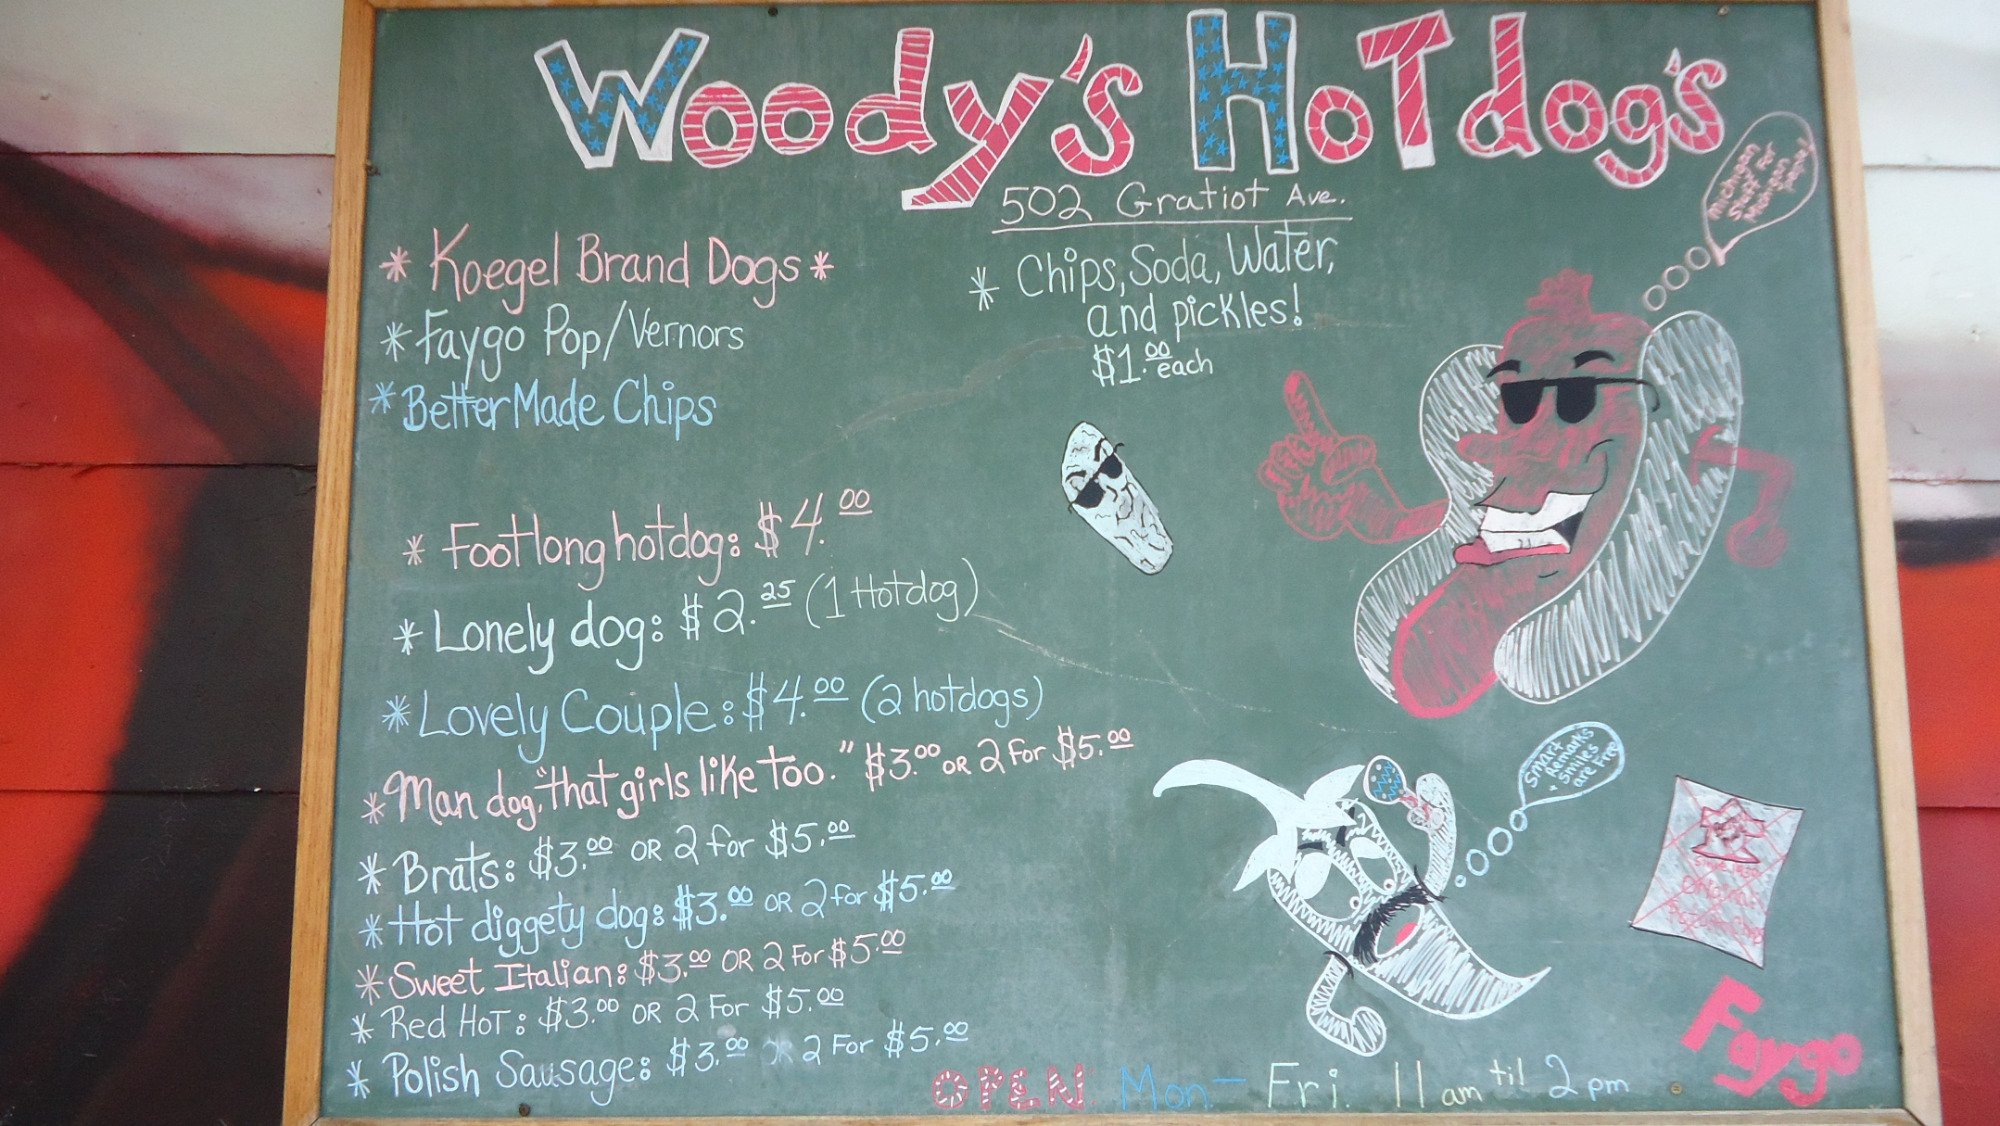 Woody's HoTdog's
502 Gratiot Ave.
* Koegel Brand Dogs *
* Faygo Pop/Vernors
* BetterMade Chips
* Chips, Soda, Water,
and pickles!
$1.00 each
Michigan
Meat for
Michigan
* Footlong hotdog: $4.00
* Lonely dog: $2.25 (1 Hotdog)
* Lovely Couple: $4.00 (2 hotdogs)
* Man dog, "that girls like too." $3.00 OR 2 for $5.00
* Brats: $3.00 OR 2 for $5.00
* Hot diggety dog: $3.00 OR 2 for $5.00
* Sweet Italian: $3.00 OR 2 For $5.00
* Red HoT: $3.00 OR 2 For $5.00
* Polish Sausage: $3.00 OR 2 For $5.00
Smart
Remarks
+ Smiles
are Free
Original
Faygo
OPEN Mon.- Fri. 11am til 2pm